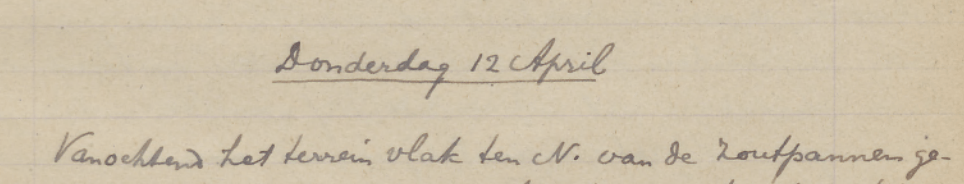 Donderdag 12 April
Vanochtend het terrein vlak ten N. van de zoutpannen ge-